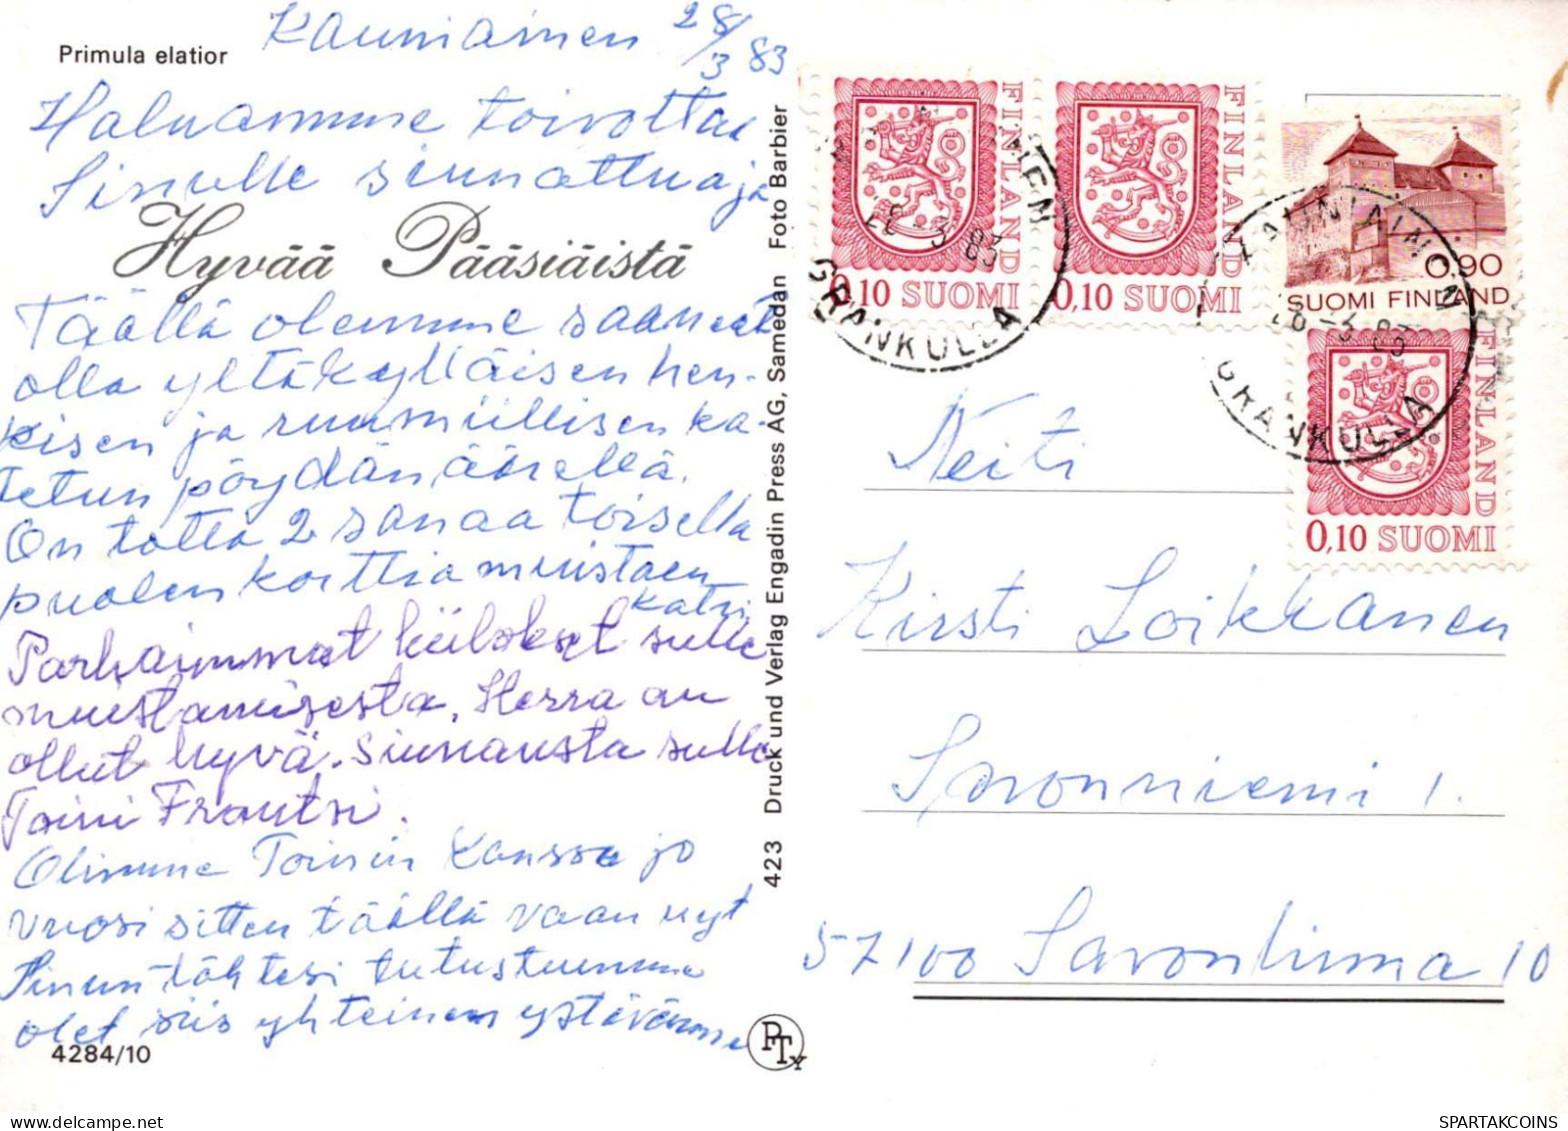 Primula elatior
Kauniainen 28/3 83
Haluamme toivottaa
Sinulle siunattua ja
Hyvää Pääsiäistä
Täällä olemme saaneet
olla yltäkylläisen hen-
kisen ja ruumiillisen ka-
tetun pöydän äärellä.
On totta 2 sanaa toisella
puolen korttia muistaen
Katri
Parhaimmat kiitokset sulle
muistamisesta. Herra on
ollut hyvä. Siunausta sulle
Toini Frantsi.
Olimme Toinin kanssa jo
vuosi sitten täällä vaan nyt
Sinun tähtesi tutustuimme
olet siis yhteinen ystävämme
4284/10
423 Druck und Verlag Engadin Press AG, Samedan Foto Barbier
PTy
FINLAND
0,10 SUOMI
FINLAND
0,10 SUOMI
0,90
SUOMI FINLAND
FINLAND
0,10 SUOMI
GRANKULLA
KAUNIAINEN
GRANKULLA
Neiti
Kirsti Loikkanen
Savonniemi 1.
57100 Savonlinna 10
SPARTAKCOINS